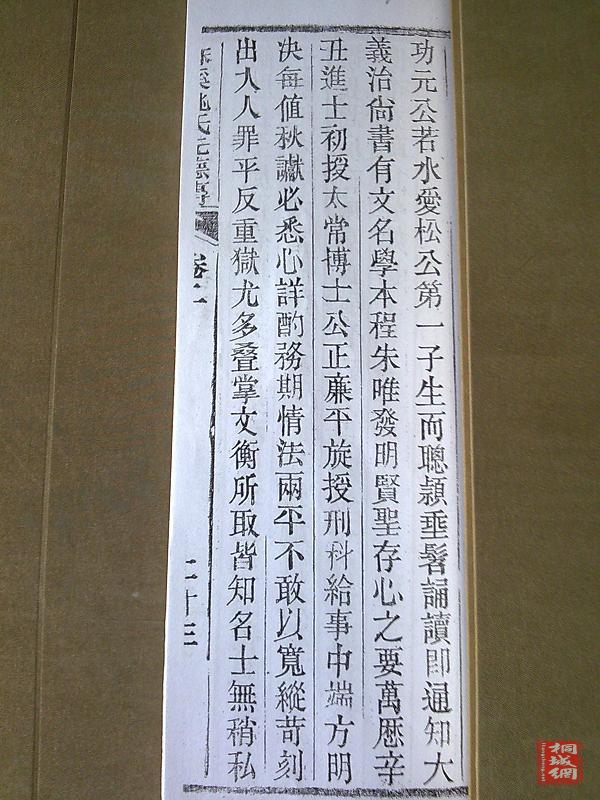 功元公若水愛松公第一子生而聰穎垂髫誦讀即通知大
義治尙書有文名學本程朱唯發明賢聖存心之要萬歷辛
丑進士初授太常博士公正廉平旋授刑科給事中端方明
決每值秋讞必悉心詳酌務期情法兩平不敢以寬縱苛刻
出入人罪平反重獄尤多叠掌文衡所取皆知名士無稍私
氏
卷二
二十三
桐城網